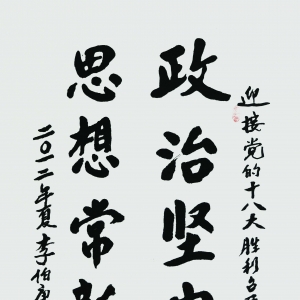 迎接党的十八大胜利召
政治坚
思想常
二〇一二年夏李伯